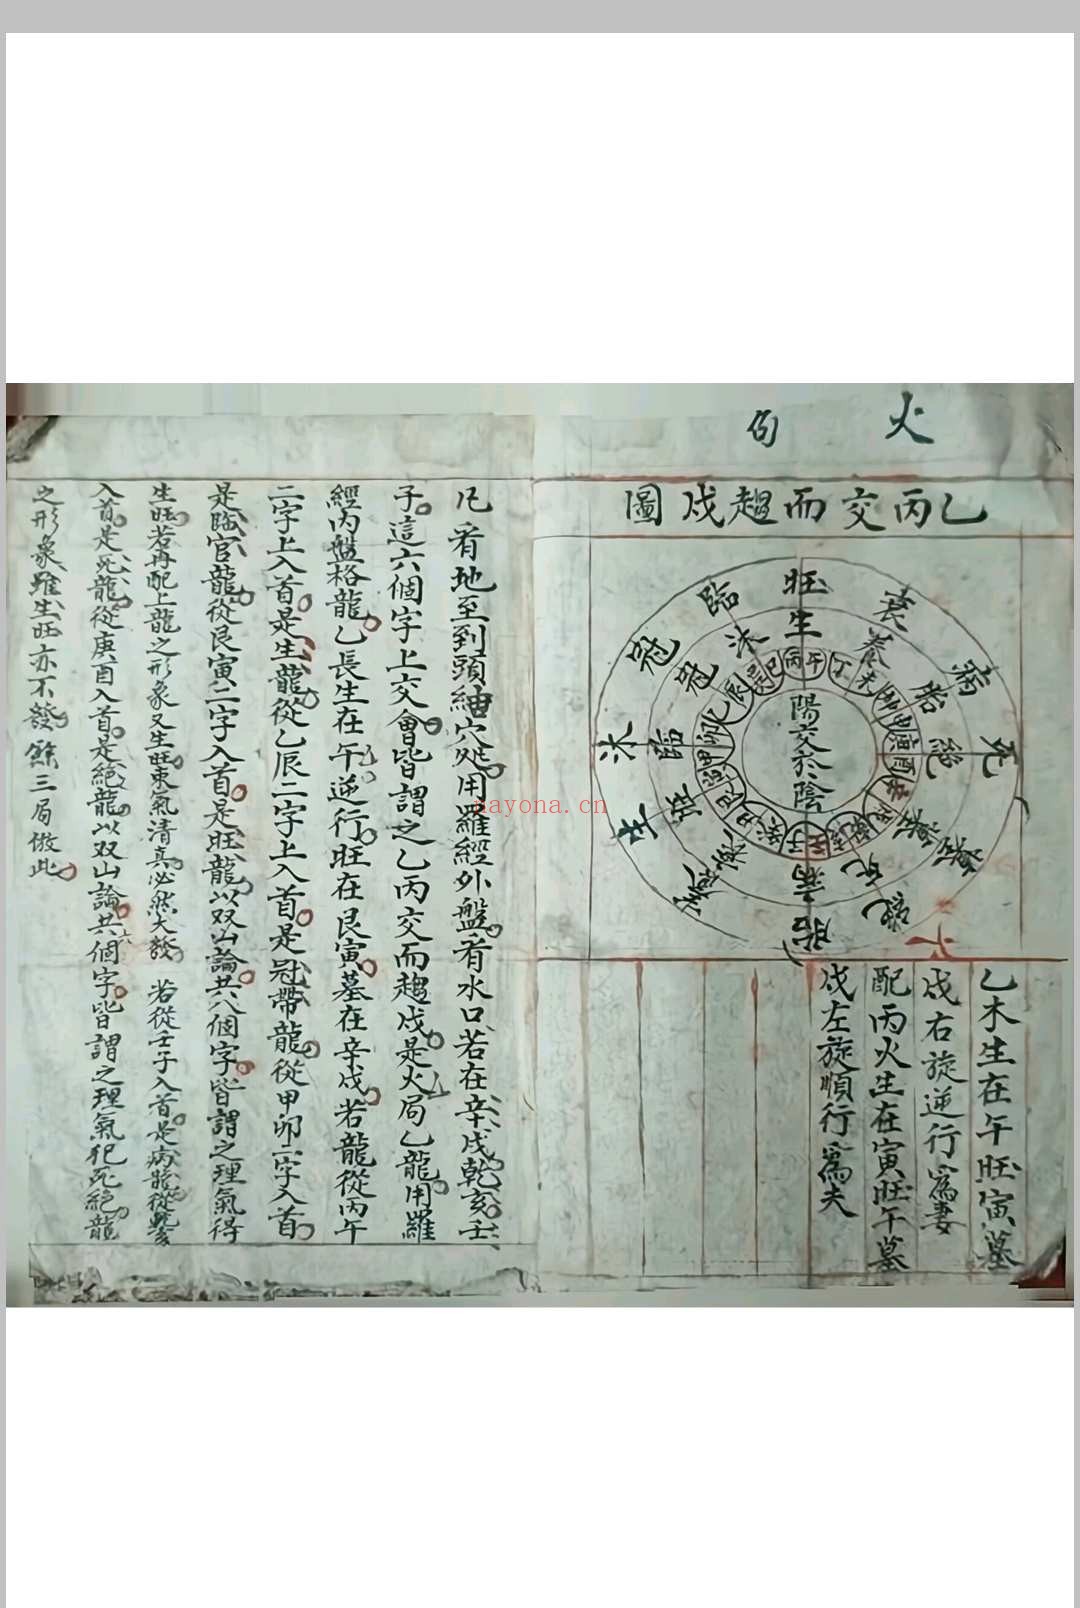 火
局
乙丙交而趨戍圖
旺
衰
病
死
墓
絕
胎
養
生
沐
冠
臨
生
養
胎
絕
墓
死
病
衰
旺
臨
冠
沐
丙午
丁未
坤申
庚酉
辛戌
乾亥
壬子
癸丑
艮寅
甲卯
乙辰
巽巳
陽交於陰
乙木生在午旺寅墓
戍右旋逆行爲妻
配丙火生在寅旺午墓
戍左旋順行爲夫
凡看地至到頭細穴処用羅經外盤看水口若在辛戍乾亥壬
子這六個字上交會皆謂之乙丙交而趨戍是火局乙龍用羅
經內盤格龍乙長生在午逆行旺在艮寅墓在辛戍若龍從丙午
二字上入首是生龍從乙辰二字上入首是冠帶龍從甲卯二字入首
是臨官龍從艮寅二字入首是旺龍以双山論共八個字皆謂之理氣得
生旺若再配上龍之形象又生旺東氣清真必然大發 若從壬子入首是病龍從乾亥
入首是死龍從庚酉入首是絕龍以双山論共六個字皆謂之理氣犯死絕龍
之形象雖生旺亦不發餘三局倣此
nayona.cn